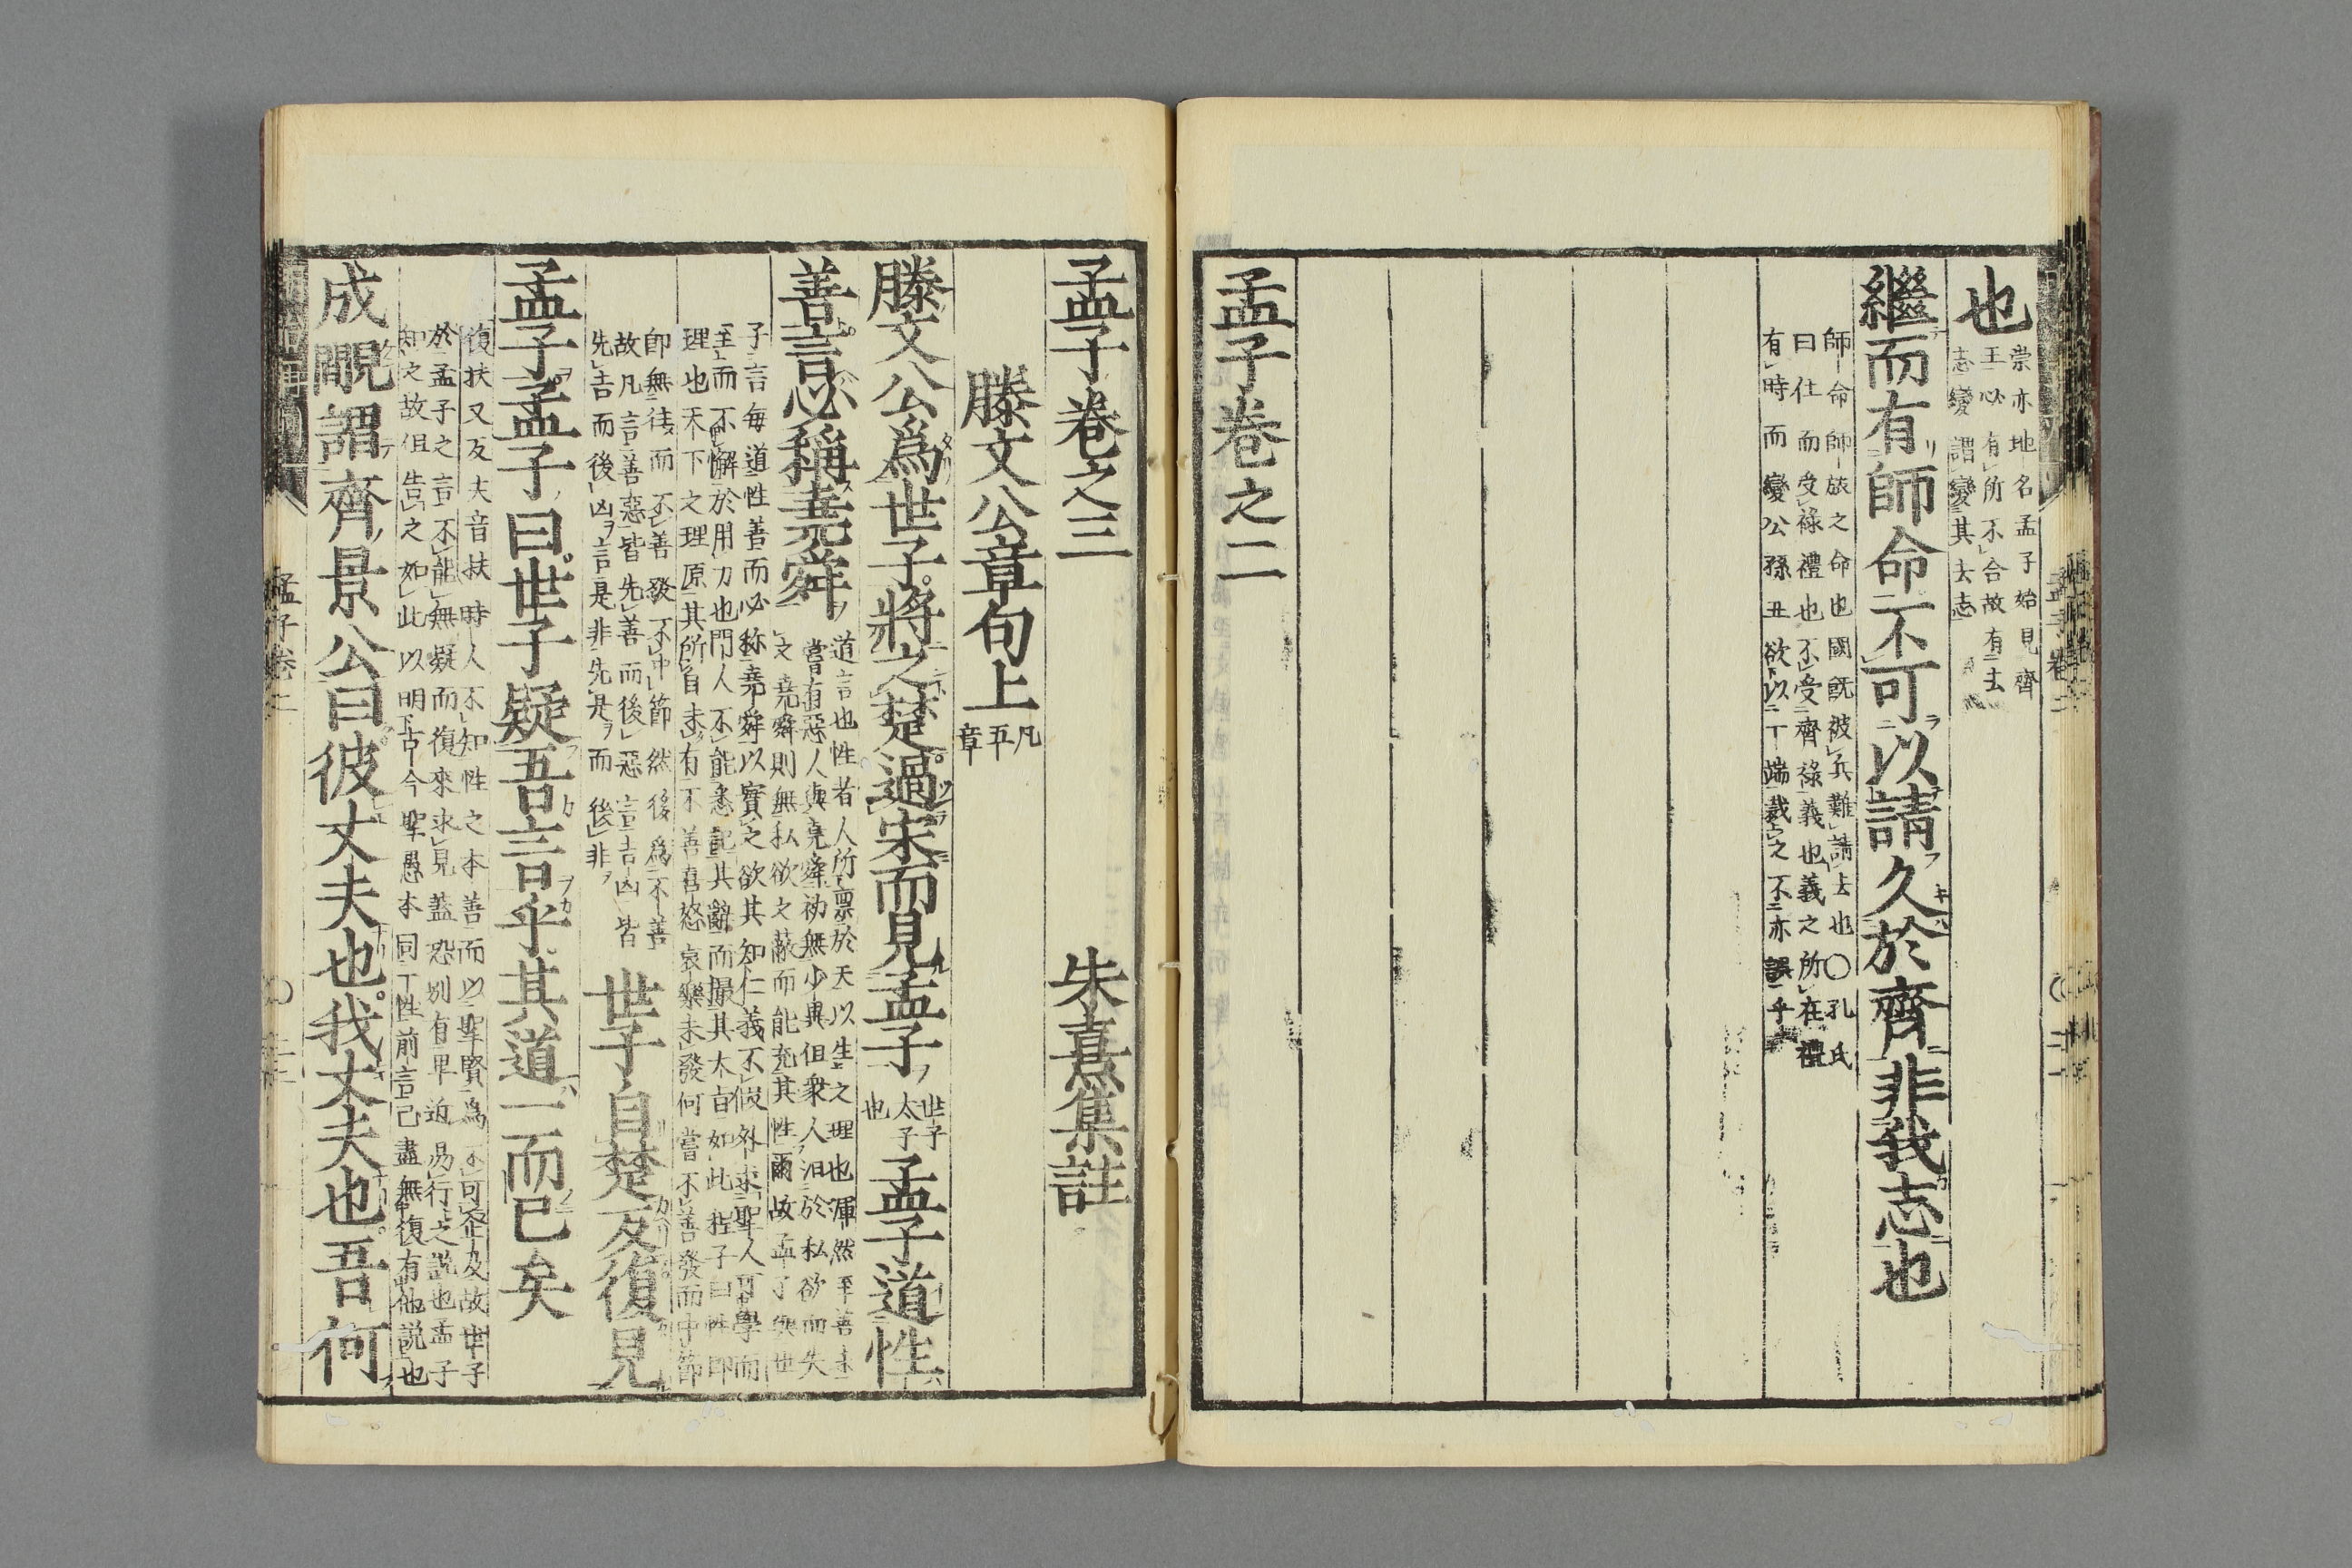 也
崇亦地名孟子始見齊
王必有所不合故有去
志變謂變其去志
繼而有師命不可以請久於齊非我志也
師命師旅之命也國既被兵難請去也〇孔氏
曰仕而受祿禮也不受齊祿義也義之所在禮
有時而變公孫丑欲以一端裁之不亦誤乎
孟子卷之二
孟子卷之三 朱熹集註
滕文公章句上 凡五章
滕文公爲世子將之楚過宋而見孟子 世子太子也 孟子道性
善言必稱堯舜
道言也性者人所稟於天以生之理也渾然至善未
嘗有惡人與堯舜初無少異但衆人汨於私欲而失
之堯舜則無私欲之蔽而能充其性爾故孟子與世
子言每道性善而必称堯舜以實之欲其知仁義不假外求聖人可學而
至而不懈於用力也門人不能悉記其辭而撮其大旨如此程子曰性即
理也天下之理原其所自未有不善喜怒哀樂未發何嘗不善發而中節
即無往而不善發不中節然後爲不善
故凡言善惡皆先善而後惡言吉凶皆
先吉而後凶言是非先是而後非
世子自楚反復見
孟子孟子曰世子疑吾言乎其道一而已矣
復扶又反夫音扶時人不知性之本善而以聖賢爲不可企及故世子
於孟子之言不能無疑而復來求見蓋恐別有卑近易行之説也孟子
知之故但告之如此以明古今聖愚本同一性前言已盡無復有他説也
成覵謂齊景公曰彼丈夫也我丈夫也吾何